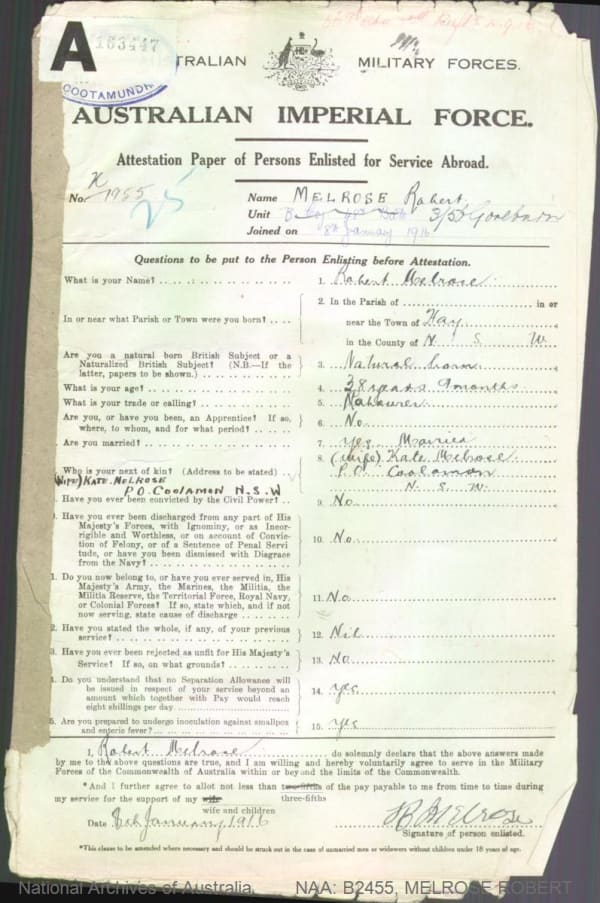 A 163447
COOTAMUNDRA
TRALIAN MILITARY FORCES.
AUSTRALIAN IMPERIAL FORCE.
Attestation Paper of Persons Enlisted for Service Abroad.
No. 1955 25
Name MELROSE Robert
Unit 3/55 Goolburn
Joined on 8th January 1916
Questions to be put to the Person Enlisting before Attestation.
What is your Name? 1. Robert Melrose
In or near what Parish or Town were you born? 2. In the Parish of in or
near the Town of Hay
in the County of N S W
Are you a natural born British Subject or a
Naturalized British Subject? (N.B.—If the
latter, papers to be shown.) 3. Natural born
What is your age? 4. 38 years 9 months
What is your trade or calling? 5.
Are you, or have you been, an Apprentice? If so,
where, to whom, and for what period? 6. No
Are you married? 7. yes Married
Who is your next of kin? (Address to be stated) 8. (wife) Kate Melrose
P.O. Coolamon
N. S. W.
(WIFE) KATE MELROSE
P.O. COOLAMON N.S.W
Have you ever been convicted by the Civil Power? 9. No
Have you ever been discharged from any part of His
Majesty's Forces, with Ignominy, or as Incor-
rigible and Worthless, or on account of Convic-
tion of Felony, or of a Sentence of Penal Servi
tude, or have you been dismissed with Disgrace
from the Navy? 10. No
1. Do you now belong to, or have you ever served in, His
Majesty's Army, the Marines, the Militia, the
Militia Reserve, the Territorial Force, Royal Navy,
or Colonial Forces? If so, state which, and if not
now serving, state cause of discharge 11. No
2. Have you stated the whole, if any, of your previous
service? 12. Nil
3. Have you ever been rejected as unfit for His Majesty's
Service? If so, on what grounds? 13. No
4. Do you understand that no Separation Allowance will
be issued in respect of your service beyond an
amount which together with Pay would reach
eight shillings per day 14. yes
5. Are you prepared to undergo inoculation against smallpox
and enteric fever? 15. yes
I, Robert Melrose do solemnly declare that the above answers made
by me to the above questions are true, and I am willing and hereby voluntarily agree to serve in the Military
Forces of the Commonwealth of Australia within or beyond the limits of the Commonwealth.
*And I further agree to allot not less than two-fifths of the pay payable to me from time to time during
three-fifths
my service for the support of my wife
wife and children
Date 8th January 1916 R Melrose
Signature of person enlisted.
*This clause to be amended where necessary and should be struck out in the case of unmarried men or widowers without children under 18 years of age.
National Archives of Australia NAA: B2455, MELROSE ROBERT